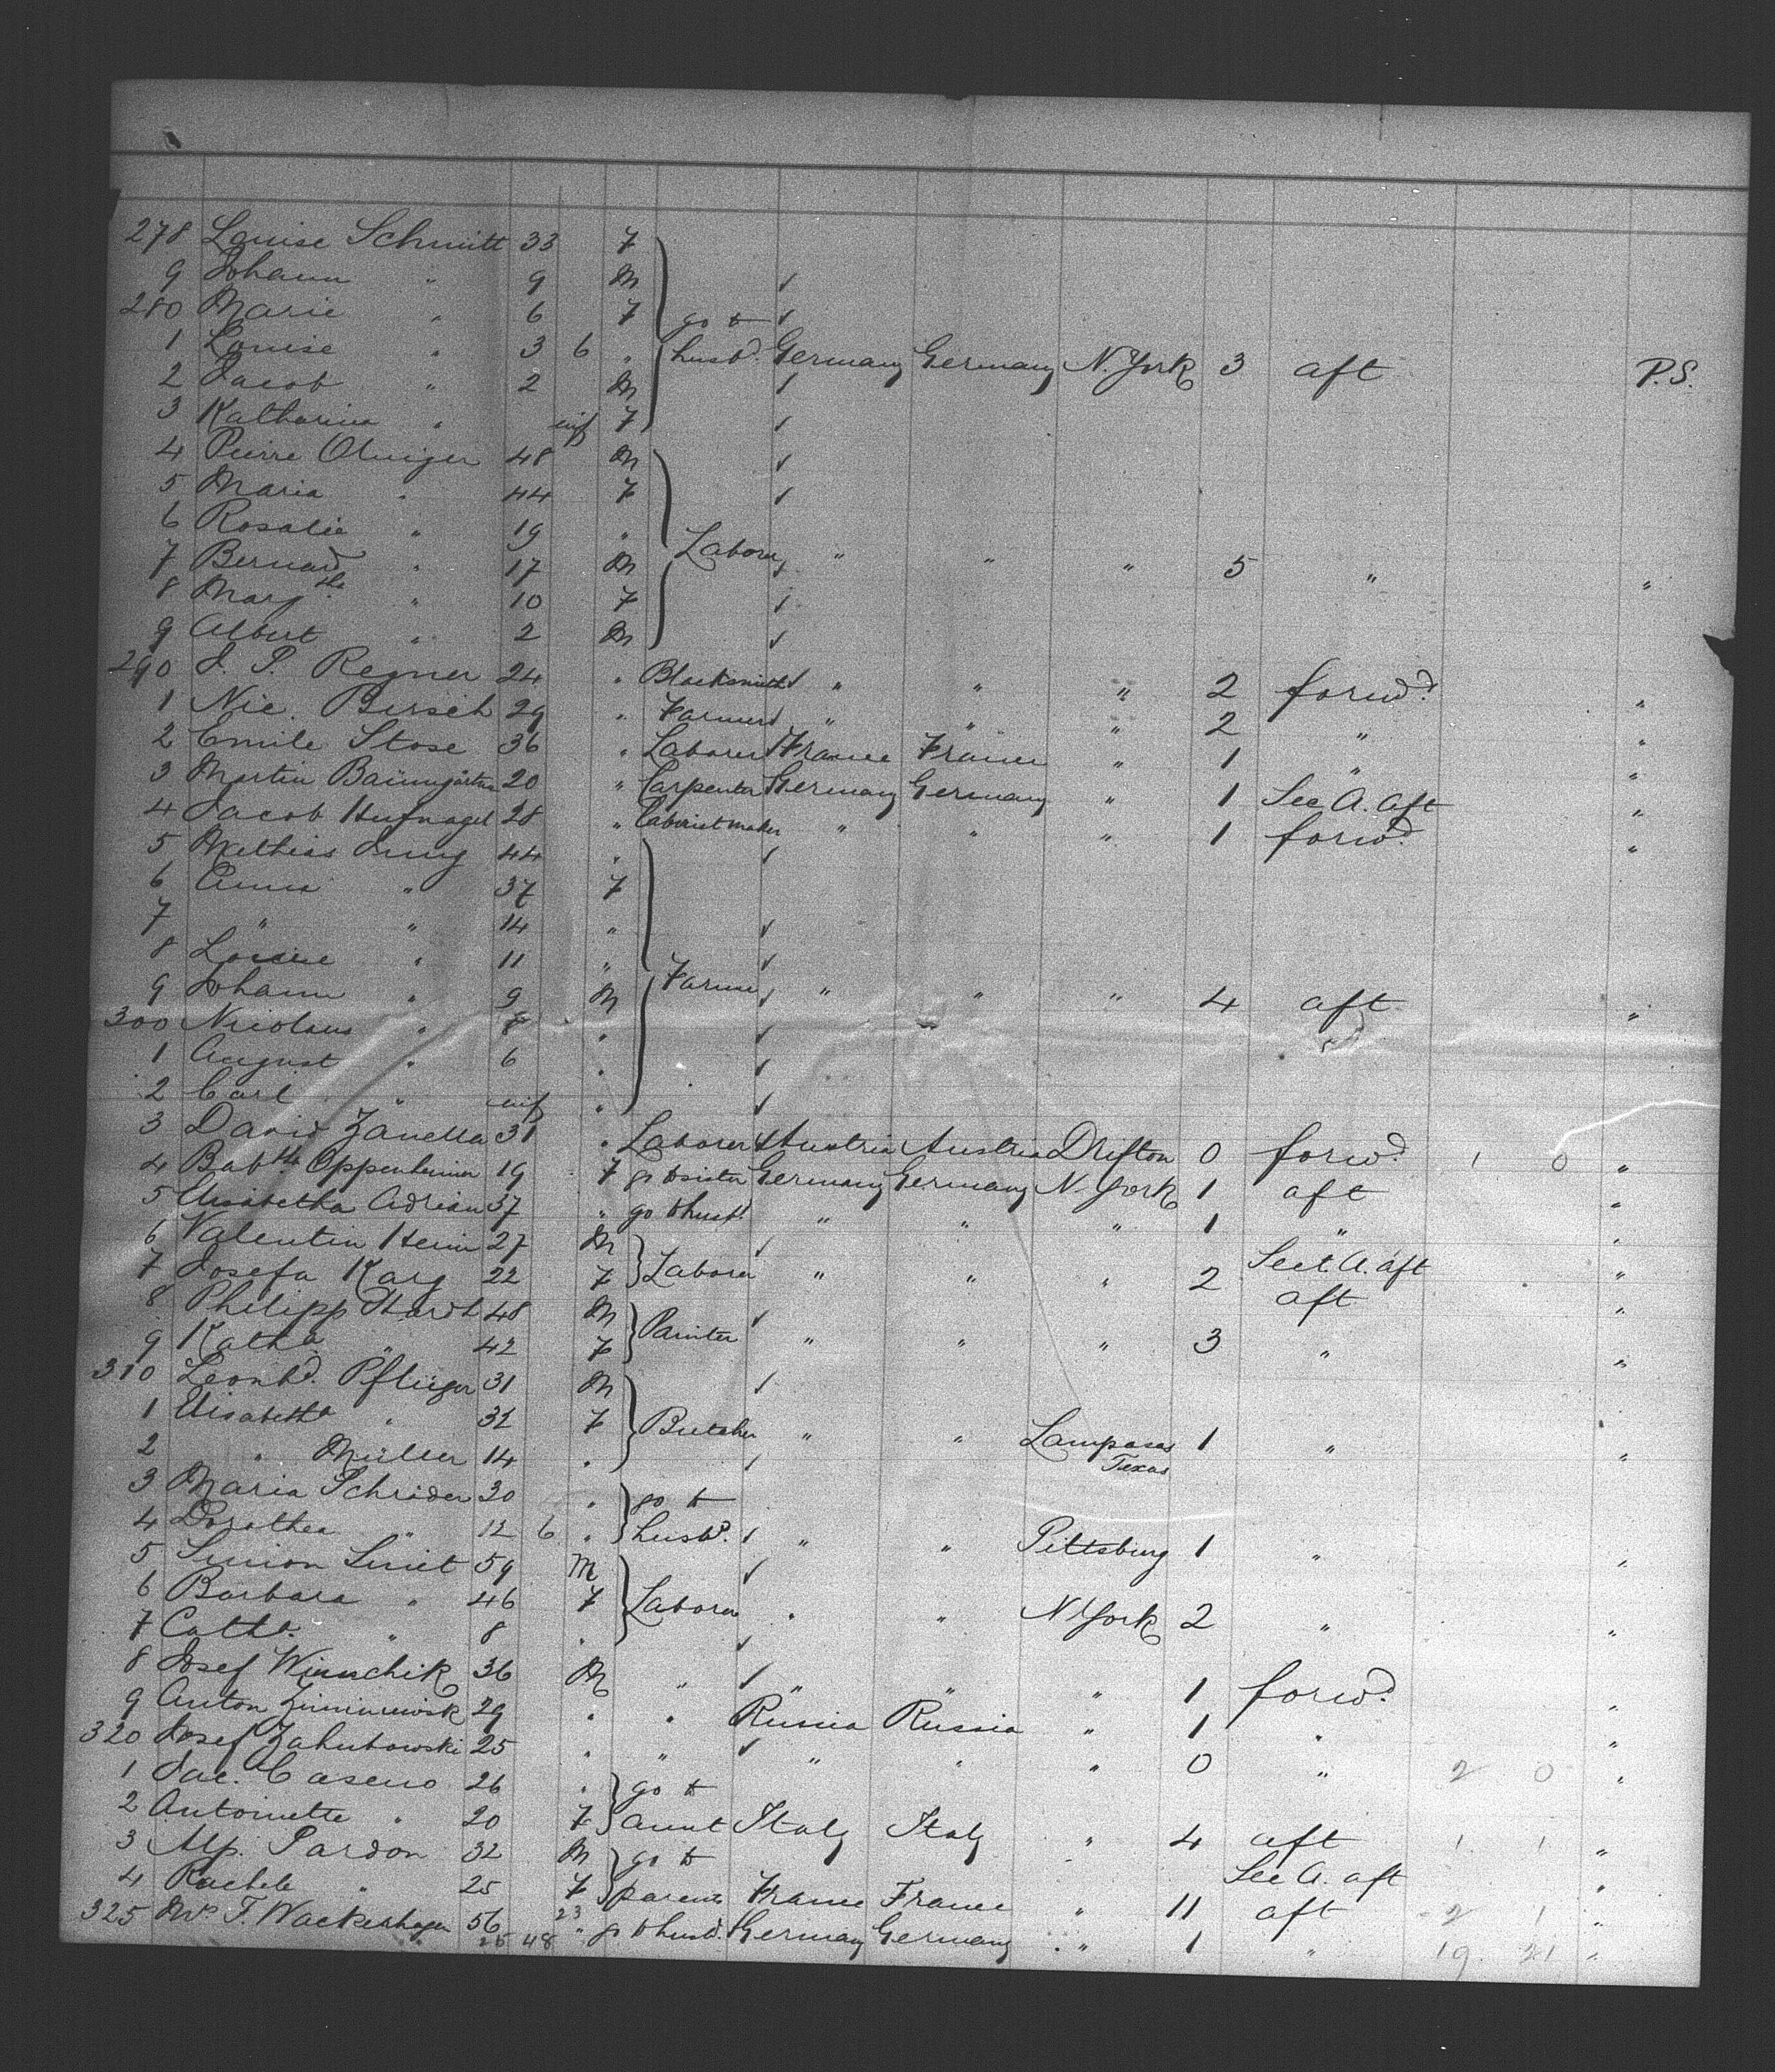 278 Louise Schmitt 33 F
9 Johann " 9 M ✓
280 Marie " 6 F go to ✓
1 Louise " 3 6 " husbd. Germany Germany N. York 3 aft P.S.
2 Jacob " 2 M ✓
3 Katharina " inf F ✓
4 Pierre 48 M ✓
5 Maria " 44 F ✓
6 Rosalie " 19 "
7 Bernard " 17 M Laborer " " " 5 " "
8 Margthe " 10 F ✓
9 Albert " 2 M ✓
290 J. P. Regner 24 " Blacksmith ✓ " " " 2 forwd. "
1 Nic. Birsch 29 " Farmer " " " 2 " "
2 Emile Stose 36 " Laborer France France " 1 " "
3 Martin Baumgärtner 20 " Carpenter Germany Germany " 1 Sec A. aft "
4 Jacob Hufnagel 28 " Cabinistmaker " " " 1 forwd. "
5 Mathias Jung 44 " ✓
6 Anna " 37 F
7 " " 14 " ✓
8 Louise " 11 " ✓
9 Johann " 9 M Farmer ✓ " " " 4 aft "
300 Nicolaus " 8 " ✓
1 August " 6 " ✓
2 Carl " inf " ✓
3 David Zanella 31 " Laborer Austria Austria Drifton 0 forwd. 1 0 "
4 Babtte Oppenheimer 19 F go to sister Germany Germany N. York 1 aft "
5 Elisabetha Adrian 37 " go to husbd. " " " 1 " "
6 Valentin 27 M ✓ Sect. A. aft
7 Josefa Karg 22 F Laborer " " " 2 aft "
8 Philipp 48 M ✓
9 Katha " 42 F Painter " " " 3 " "
310 Leonhd. Pflüger 31 M ✓
1 Elisabetha " 32 F Butcher " " Lampasas Texas 1 " "
2 " Müller 14 " ✓
3 Maria Schrider 30 " go to
4 Dorothea " 12 6 " husbd. ✓ " " Pittsburg 1 " "
5 Simon 59 M ✓
6 Barbara " 46 F Laborer " " N York 2 " "
7 Catha. " 8 " ✓
8 Josef 36 M " ✓ " " " 1 forwd. "
9 Anton 29 " " Russia Russia " 1 " "
320 Josef Zakubowski 25 " " ✓ " " " 0 " 2 0 "
1 Jac. Caseno 26 " go to
2 Antoinette " 20 F aunt Italy Italy " 4 aft 1 1 "
3 Alp. Pardon 32 M go to Sec A. aft
4 Rachele " 25 F parents France France " 11 aft 2 1 "
325 Mrs F. Wackenhagen 56 " go to husbd. Germany Germany " 1 " 19 21 "
25 48 23